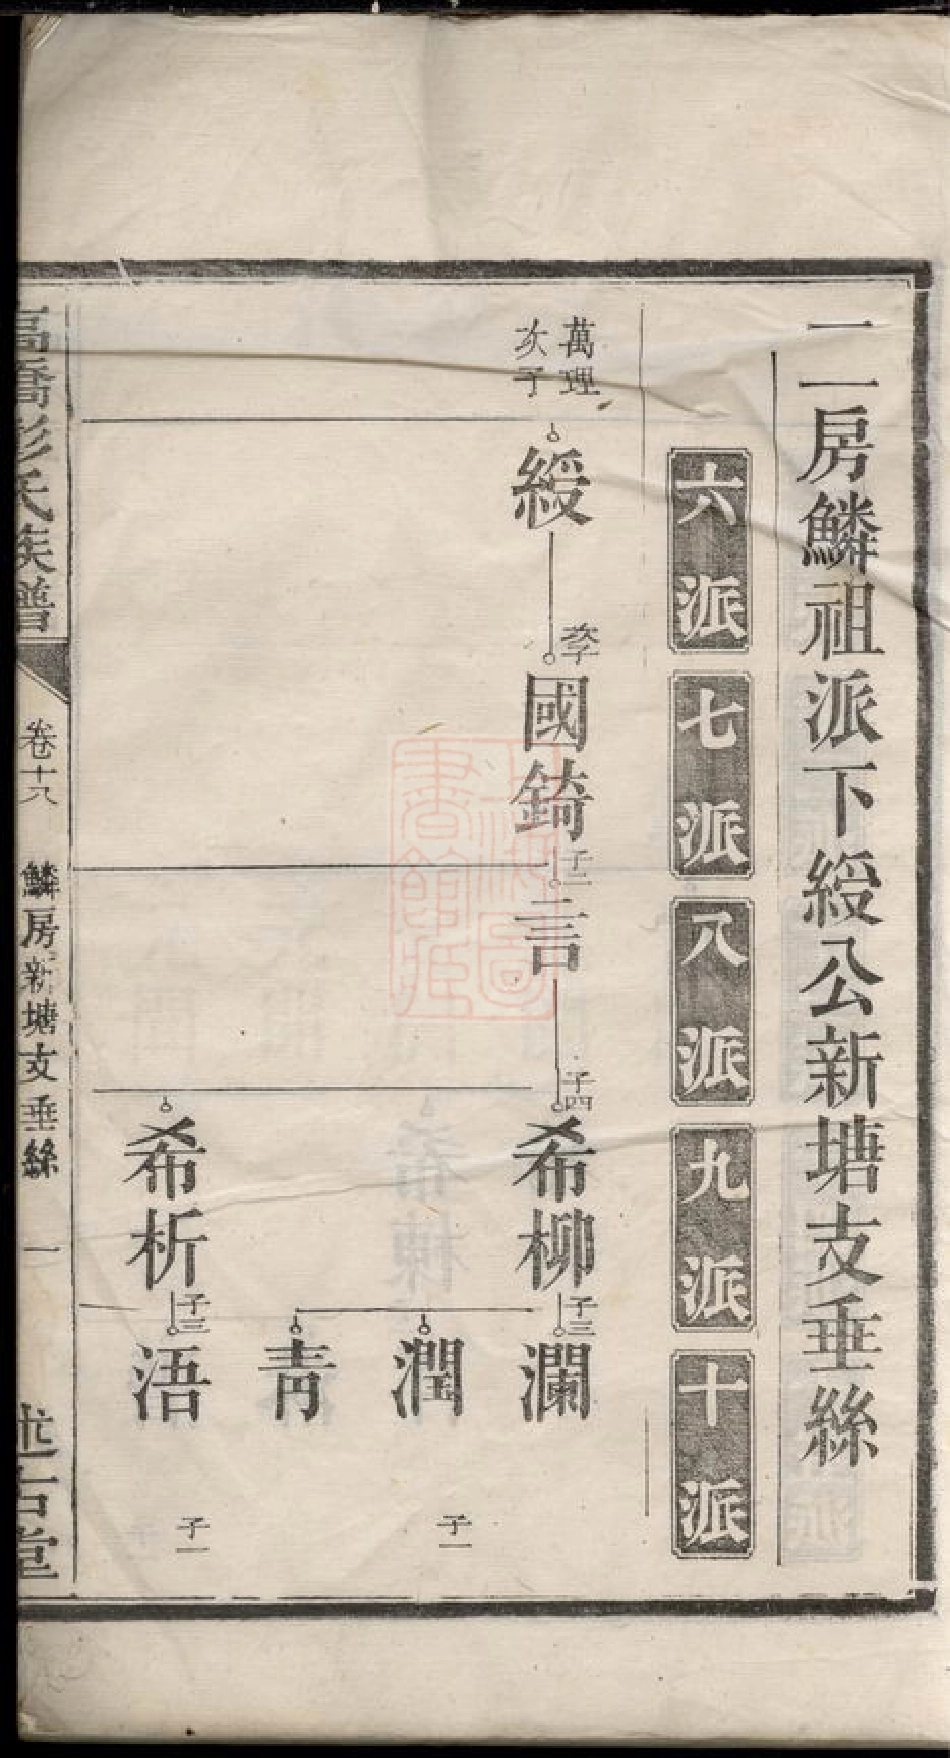 二房鱗祖派下綬公新塘支垂絲
六派
七派
八派
九派
十派
萬理
次子
綬
國錡
子二
言
子四
希柳
子三
瀾
潤
子一
青
希析
子三
浯
子一
高橋彭氏族譜
卷十六
鱗房新塘支垂絲
一
述古堂